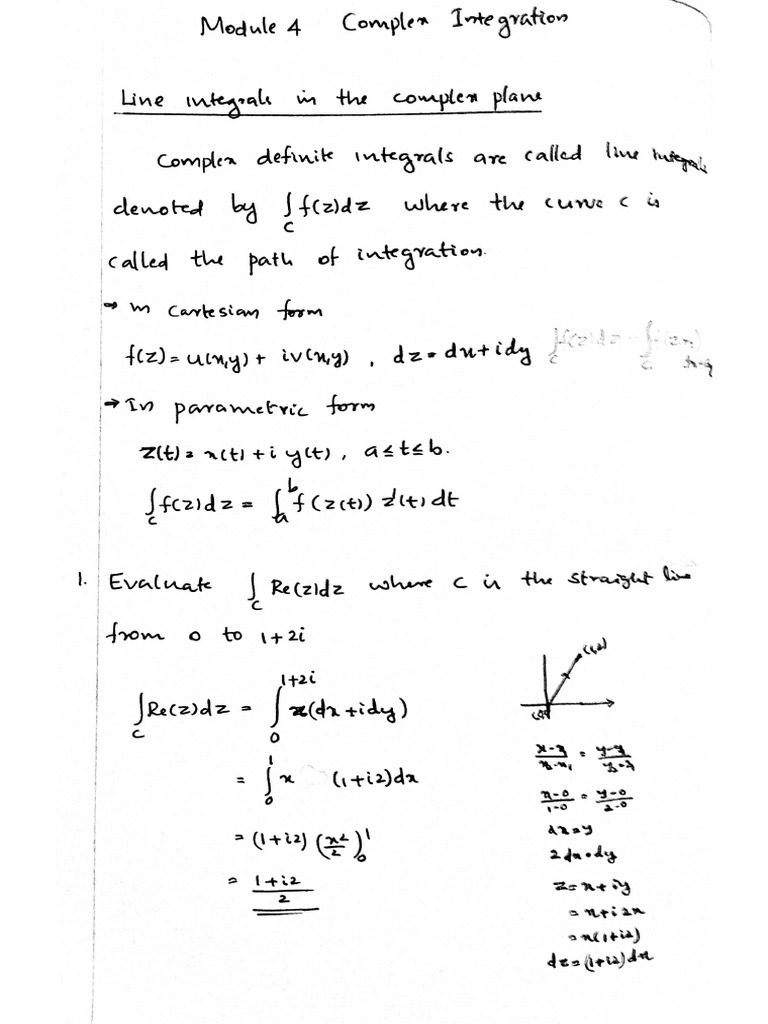 Module 4 Complex Integration
Line integrals in the complex plane
Complex definite integrals are called line integrals
denoted by ∫_C f(z)dz where the curve C is
called the path of integration.
→ In Cartesian form
f(z) = u(x,y) + iv(x,y) , dz = dx + idy
→ In parametric form
z(t) = x(t) + i y(t) , a ≤ t ≤ b.
∫_C f(z)dz = ∫_a^b f(z(t)) z'(t) dt
1. Evaluate ∫_C Re(z)dz where C is the straight line
from 0 to 1+2i
(1,2)
∫_C Re(z)dz = ∫_0^{1+2i} x(dx + idy)
= ∫_0^1 x (1+i2)dx
= (1+i2) (x²/2)_0^1
= (1+i2)/2
(x-0)/(1-0) = (y-0)/(2-0)
2x = y
2dx = dy
z = x + iy
= x + i2x
= x(1+i2)
dz = (1+i2)dx